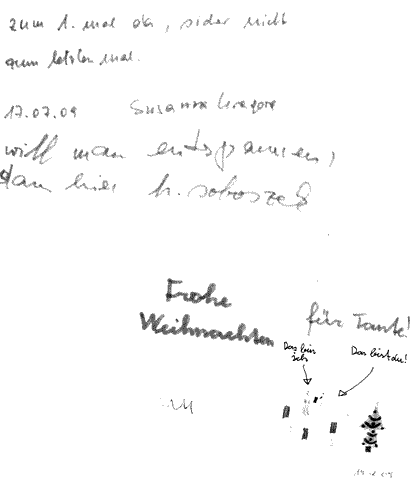 zum 1. mal da, sicher nicht
zum letzten mal.
17.07.09 Susanna Gregore
will man entspannen,
dan hier h. soboszek
Frohe
Weihnachten
für Tante!
Das bin
ich
Das bist du!